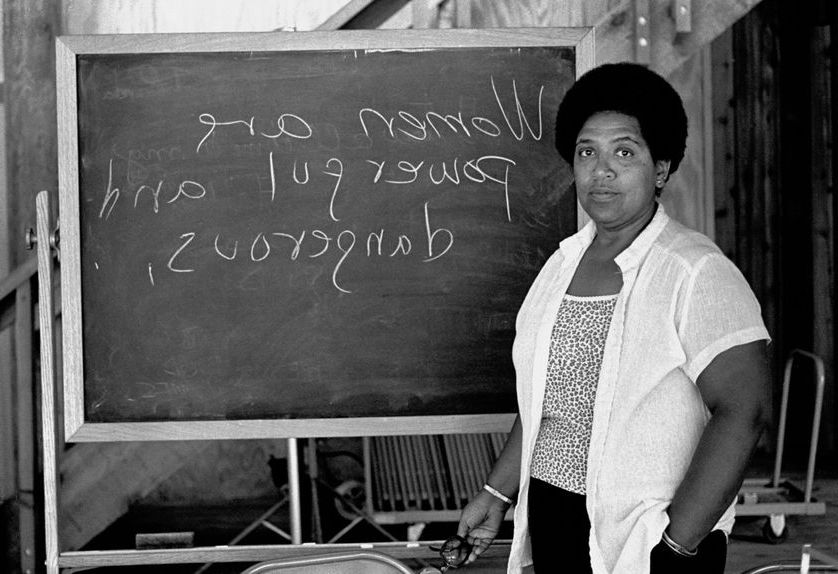 Women are
powerful and
dangerous.